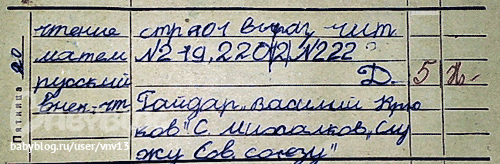 Пятница 20
чтение стр 101 выраз чит
матем №219, 220(2) №222
русский Д. 5
внек-чт Гайдар „Василий Крю
ков" С. Михалков „Слу
жу Сов. союзу"
babyblog.ru/user/vnv13